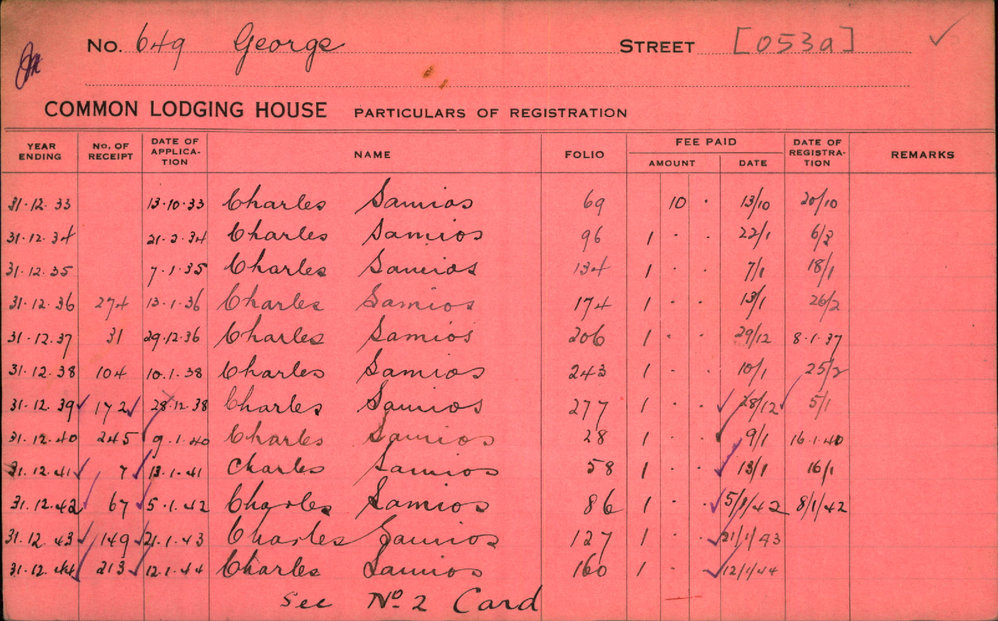 No. 649 George STREET [053a] ✓
COMMON LODGING HOUSE PARTICULARS OF REGISTRATION
YEAR ENDING NO. OF RECEIPT DATE OF APPLICA- TION NAME FOLIO FEE PAID AMOUNT DATE DATE OF REGISTRA- TION REMARKS
31.12.33 13.10.33 Charles Samios 69 10 . 13/10 20/10
31.12.34 21.2.34 Charles Samios 96 1 . . 22/1 6/3
31.12.35 7.1.35 Charles Samios 134 1 . . 7/1 18/1
31.12.36 274 13.1.36 Charles Samios 174 1 . . 13/1 26/2
31.12.37 31 29.12.36 Charles Samios 206 1 . . 29/12 8.1.37
31.12.38 104 10.1.38 Charles Samios 243 1 . . 10/1 25/2
31.12.39 ✓ 172 ✓ 28.12.38 Charles Samios 277 1 . . ✓ 28/12 ✓ 5/1
31.12.40 245 9.1.40 Charles Samios 28 1 . . ✓ 9/1 16.1.40
31.12.41 ✓ 7 ✓ 13.1.41 Charles Samios 58 1 . . ✓ 13/1 16/1
31.12.42 ✓ 67 ✓ 5.1.42 Charles Samios 86 1 . . ✓ 5/1/42 8/1/42
31.12.43 ✓ 149 ✓ 21.1.43 Charles Samios 127 1 . . ✓ 21/1/43
31.12.44 ✓ 213 ✓ 12.1.44 Charles Samios 160 1 . . ✓ 12/1/44
See No. 2 Card